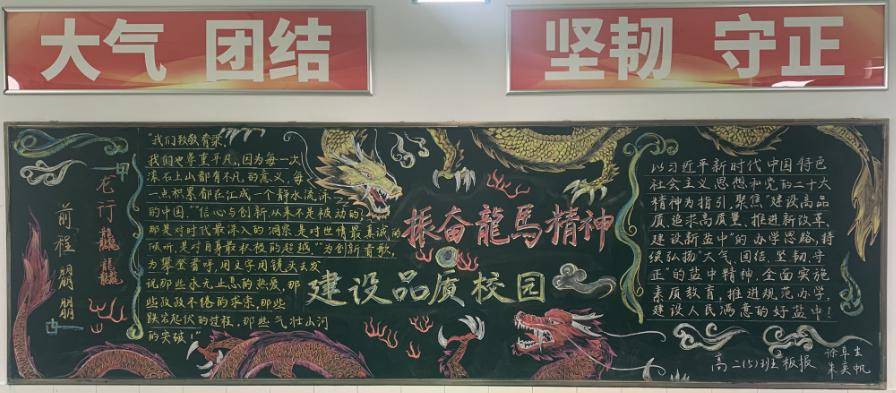 大气 团结
坚韧 守正
甲
龙行龘龘
前程朤朤
"我们致敬有梁,
我们也尊重平凡,因为每一次
滚石上山都有不凡的意义,每
一点积累都在汇成一个静水流深
的中国。"信心与创新从来不是被动的,
那是对时代最深入的洞察,是对世情最真诚的
倾听,是对自身最积极的超越。"为创新
为攀登者呼,用文字用镜头去发
那些永无止息的热爱,那
些孜孜不倦的求索,那些
跌宕起伏的过程,那些气壮山河
的突破!
振奋龍馬精神
建设品质校园
以习近平新时代中国特色
社会主义思想和党的二十大
精神为指引,聚焦"建设高品
质,追求高质量,推进新改革,
建设新盐中"的办学思路,持
续弘扬"大气、团结、坚韧、守
正"的盐中精神,全面实施
素质教育,推进规范办学,
建设人民满意的好盐中!
高二(5)班板报